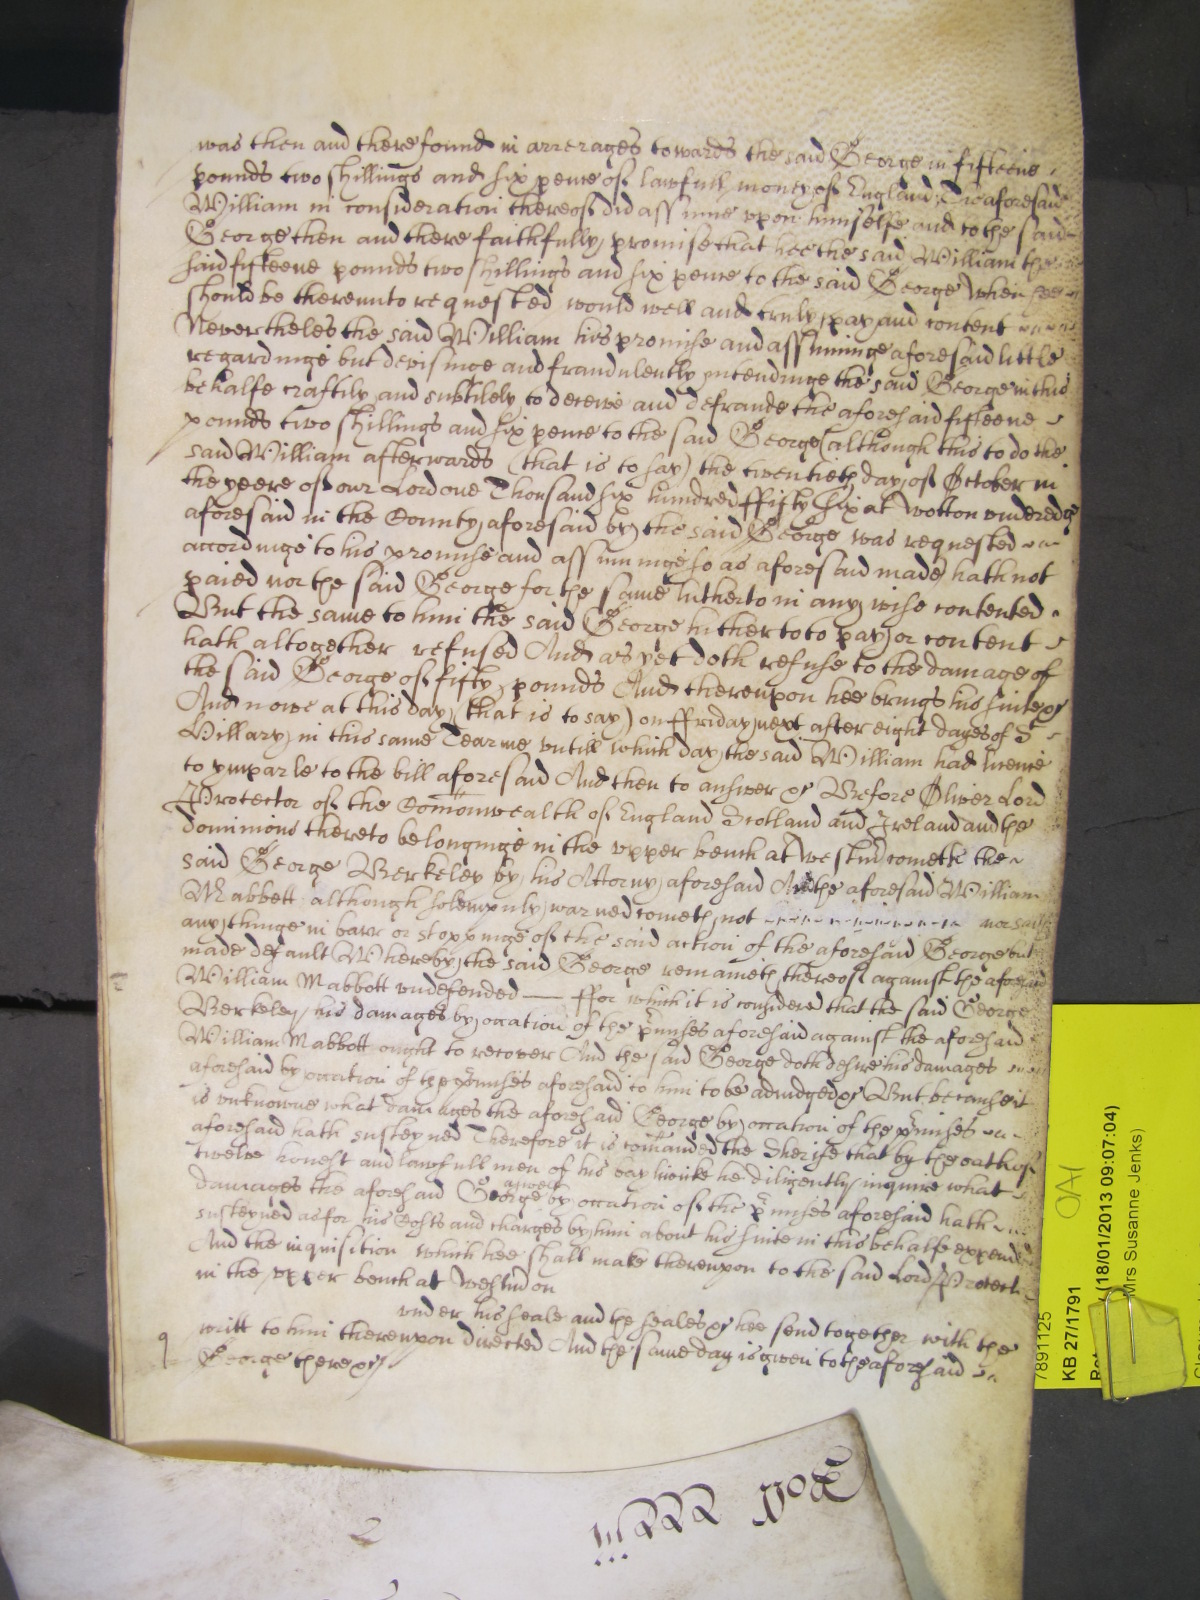 was then and there found in arrerages towards the said George in fifteene
pounds two shillings and six pence of lawfull money of England, The aforesaid
William in consideration thereof did assume upon himselfe and to the said
George then and there faithfully promise that hee the said William the
said fifteene pounds two shillings and six pence to the said George when hee
should be thereunto requested would well and truly pay and content
Nevertheles the said William his promise and assuminge aforesaid little
regardinge but devisinge and fraudulently intendinge the said George in this
behalfe craftily and subtilely to deceive and defraude the aforesaid fifteene
pounds two shillings and six pence to the said George (although this to do the
said William afterwards (that is to say) the twentieth day of October in
the yeere of our Lord one Thousand six hundred ffifty six at Wotton underedge
aforesaid in the County aforesaid by the said George was requested
accordinge to his promise and assuminge so as aforesaid made) hath not
paied nor the said George for the same hitherto in any wise contented
But the same to him the said George hitherto to pay or content
hath altogether refused And as yet doth refuse to the damage of
the said George of fifty pounds And thereupon hee brings his suite &c
And nowe at this day (that is to say) on ffriday next after eight dayes of St
Hillary in this same Tearme untill which day the said William had licence
to imparle to the bill aforesaid And then to answer &c Before Oliver Lord
Protector of the Comonwealth of England Scotland and Ireland and the
dominions thereto belonginge in the upper bench at Westmr cometh the
said George Berkeley by his Attorny aforesaid And the aforesaid William
Mabbett although solempnly warned cometh not nor saith
any thinge in barr or stoppinge of the said action of the aforesaid George but
made default Whereby the said George remaineth thereof against the aforesaid
William Mabbott undefended — ffor which it is considered that the said George
Berkeley his damages by occation of the pmises aforesaid against the aforesaid
William Mabbott ought to recover And the said George doth desire his damages
aforesaid by occation of the pmises aforesaid to him to be adiudged &c But because it
is unknowne what damages the aforesaid George by occation of the pmises
aforesaid hath susteyned Therefore it is comanded the Sherife that by the oath of
twelve honest and lawfull men of his bayliwike he diligently inquire what
damages the aforesaid George aswell by occation of the pmises aforesaid hath
susteyned as for his Costs and charges by him about his suite in this behalfe expended
And the inquisition which hee shall make thereupon to the said Lord Protector
in the upper bench at Westmr on
under his seale and the seales &c hee send together with the
writt to him thereupon directed And the same day is given to the aforesaid
George there &c
7891125
KB 27/1791
(18/01/2013 09:07:04)
Mrs Susanne Jenks)